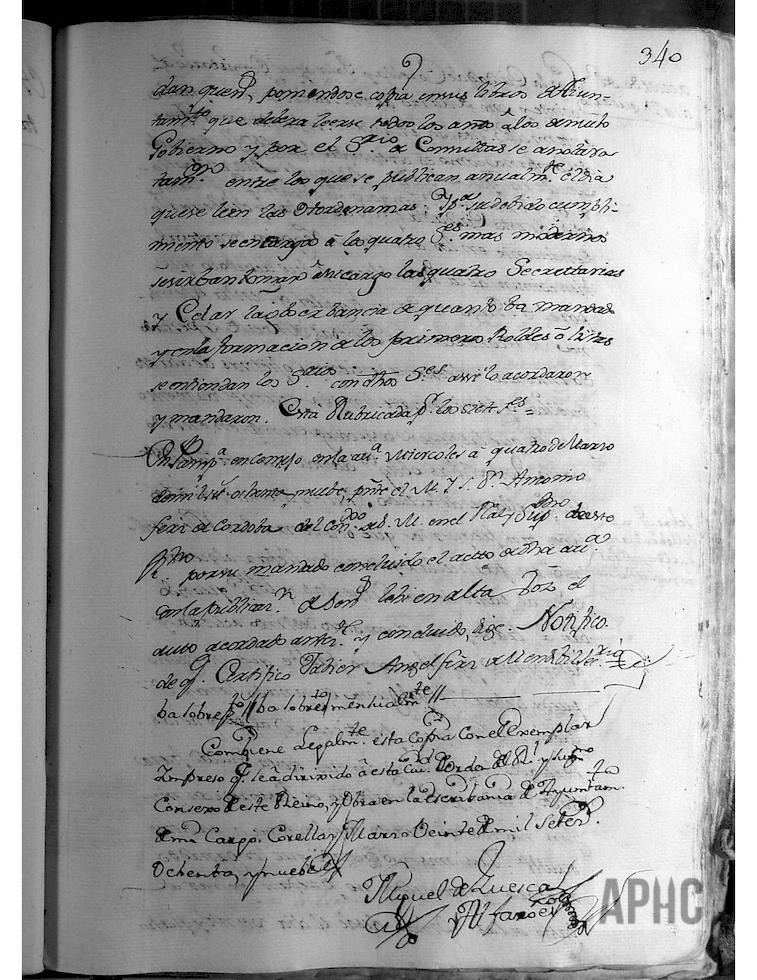 340
dan quenta, poniendose copia en sus libros de Aiun-
tamto que debera leerse todos los años â los de nuebo
Gobierno y por el Srio de Consultas se anotara
tamn entre los que se publican anualmte êl dia
que se leen las Otordenamas; Y pa su debido cumpli-
miento se encargo â los quatro Ses mas modernos
se sirban tomar â su cargo las quatro Secrettarias
y Celar la observancia de quanto ba mandado
y en la formacion de los primeros Roldes ô listas
se entiendan los Srios con dhos Ses assi lo acordaron
y mandaron. Está Rubricada pr los siete Ses =
En Pampa en consejo en la aua Miercoles â quatro de Marzo
de mil sets ochenta y nuebe, pnte el M. Y. S. Dn Antonio
ferz de Cordoba del Conso de S. M. en el Rl y Supmo de este
Rno por su mandado concluido el acto de dha aua
con la publicazn de Sents lehi en alta boz el
auto acordado anterr y concluido, dige. Notifico
de q Certifico Jabier Angel ferz de Mendibil Serio
ba sobrepto // ba sobrepto mensualmte //
Combiene Legalmte esta Copia con el Exemplar
Impreso q se â dirixido â esta Ciud de Orden del Rl y Supmo
Consexo de este Reino, y Obra en la escribania de Ayuntamto
de mi Cargo. Corella y Marzo Veinte de mil Seteztos
Ochenta, y nuebe
Miguel de Luesca
y Alfaro esno
APHC